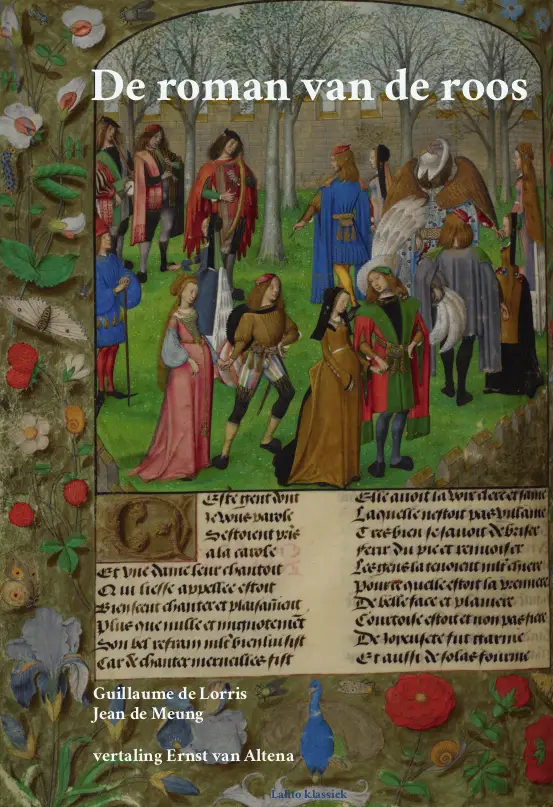 De roman van de roos
Ceste gent dont
Je vous parole
Sestoient pris
a la carole
Et vne dame leur chantoit
Qui liesse appellee estoit
Bien sceut chanter et plaisamment
Plus que nulle et mignotement
Son bel refrain mlt bien luy sist
Car de chanter merueilles fist
Elle auoit la voix clere et saine
Laquelle nestoit pas villaine
Tres bien se sauoit debriser
ferir du pie et renuoiser
Les gens la tenoient mlt chiere
Pour ce quelle estoit la premiere
De belle face et planiere
Courtoise estoit et non pas fiere
De Joyeusete fut garnie
Et aussi de solas fournie
Guillaume de Lorris
Jean de Meung
vertaling Ernst van Altena
Lalito klassiek